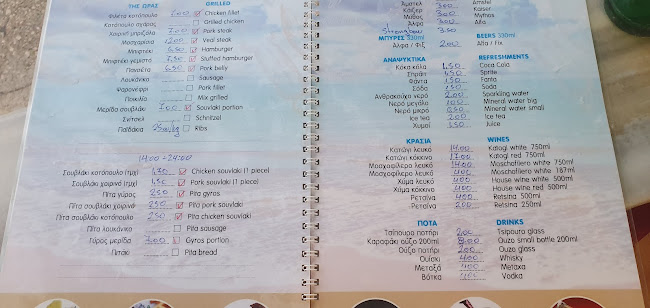 ΤΗΣ ΩΡΑΣ GRILLED
Φιλέτο κοτόπουλο 7.00 Chicken fillet
Κοτόπουλο σχάρας Grilled chicken
Χοιρινή μπριζόλα 7.00 Pork steak
Μοσχαρίσια 12.00 Veal steak
Μπιφτέκι 6.50 Hamburger
Μπιφτέκι γεμιστό 7.50 Stuffed hamburger
Πανσέτα 6.50 Pork belly
Λουκάνικο Sausage
Ψαρονέφρι Pork filler
Ποικιλία Mix grilled
Μερίδα σουβλάκι 7.00 Souvlaki portion
Σνίτσελ Schnitzel
Παϊδάκια Ribs
14:00 - 24:00
Σουβλάκι κοτόπουλο (τμχ) Chicken souvlaki (1 piece)
Σουβλάκι χοιρινό (τμχ) 1.50 Pork souvlaki (1 piece)
Πίτα γύρος 2.50 Pita gyros
Πίτα σουβλάκι χοιρινό 2.50 Pita pork souvlaki
Πίτα σουβλάκι κοτόπουλο 2.50 Pita chicken souvlaki
Πίτα λουκάνικο Pita sausage
Γύρος μερίδα 7.00 Gyros portion
Πιτάκι Pita bread
Άμστελ Amstel
Κάιζερ 300 Kaiser
Μύθος 300 Mythos
Άλφα 300 Alfa
Strongbow 350
ΜΠΥΡΕΣ 330ml BEERS 330ml
Άλφα / Φιξ 200 Alfa / Fix
ΑΝΑΨΥΚΤΙΚΑ REFRESHMENTS
Κόκα κόλα 1.50 Coca Cola
Σπράιτ 1.50 Sprite
Φάντα 150 Fanta
Σόδα 150 Soda
Ανθρακούχο νερό 2.00 Sparkling water
Νερό μεγάλο 100 Mineral water big
Νερό μικρό 050 Mineral water small
Ice tea 200 Ice tea
Χυμοί 350 Juice
ΚΡΑΣΙΑ WINES
Κατώγι λευκό 14.00 Katogi white 750ml
Κατώγι κόκκινο 17.00 Katogi red 750ml
Μοσχοφίλερο λευκό 14.00 Moschofilero white 750ml
Μοσχοφίλερο λευκό 400 Moschofilero white 187ml
Χύμα λευκό 400 House wine white 500ml
Χύμα κόκκινο 400 House wine red 500ml
Ρετσίνα 400 Retsina 500ml
Ρετσίνα 200 Retsina 250ml
ΠΟΤΑ DRINKS
Τσίπουρο ποτήρι 200 Tsipouro glass
Καραφάκι ούζο 200ml 8.00 Ouzo small bottle 200ml
Ούζο ποτήρι 200 Ouzo glass
Ουίσκι 400 Whisky
Μεταξά 400 Metaxa
Βότκα 400 Vodka